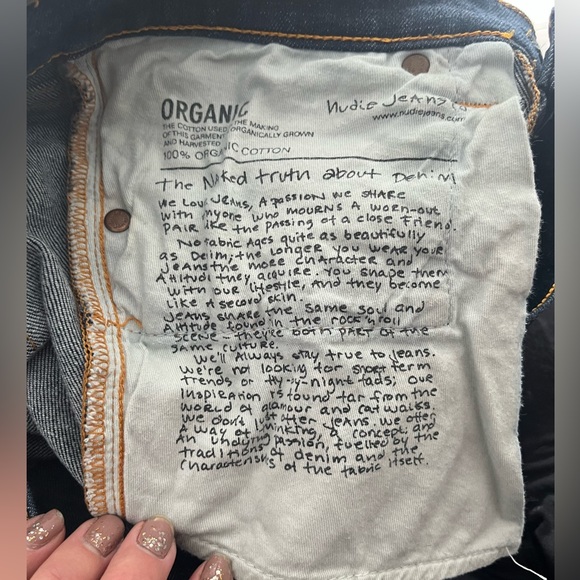 ORGANIC
THE COTTON USED THE MAKING
OF THIS GARMENT ORGANICALLY GROWN
AND HARVESTED
100% ORGANIC COTTON
Nudie Jeans
www.nudiejeans.com
The Naked truth about Denim
We Love Jeans, A passion we share
with anyone who mourns a worn-out
pair like the passing of a close friend.
No fabric Ages quite as beautifully
as Deim; the longer you wear your
jeans the more character and
Attitude they acquire. You shape them
with our lifestyle, and they become
Like A second skin.
Jeans share the same soul and
Attitude found in the rock'n roll
scene - they're both part of the
same culture.
We'll Always stay true to jeans.
We're not looking for short term
trends or fly-by-night fads; our
Inspiration is found far from the
world of glamour and catwalks.
We don't just offer jeans. We offer
A way of thinking, A concept, and
An undying passion, fuelled by the
traditions of denim and the
characteristics of the fabric itself.